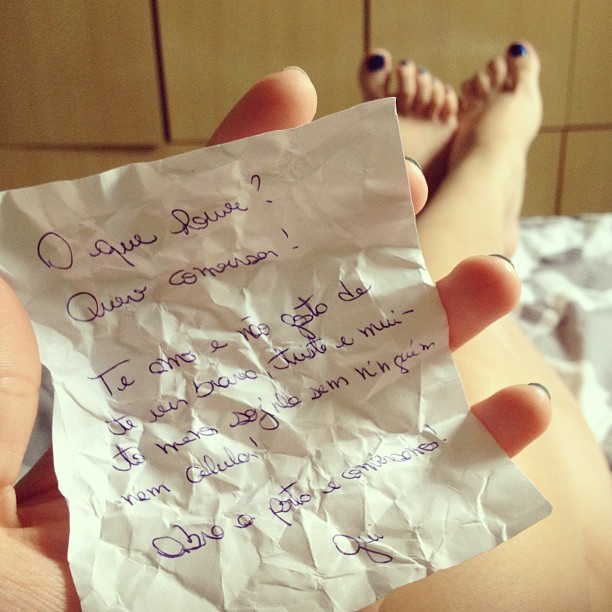 O que houve?
Quero conversar!
Te amo e não gosto de
te ver brava, triste e mui-
to menos sozinha sem ninguém
nem celular!
Abre a porta e conversamos!
Gui